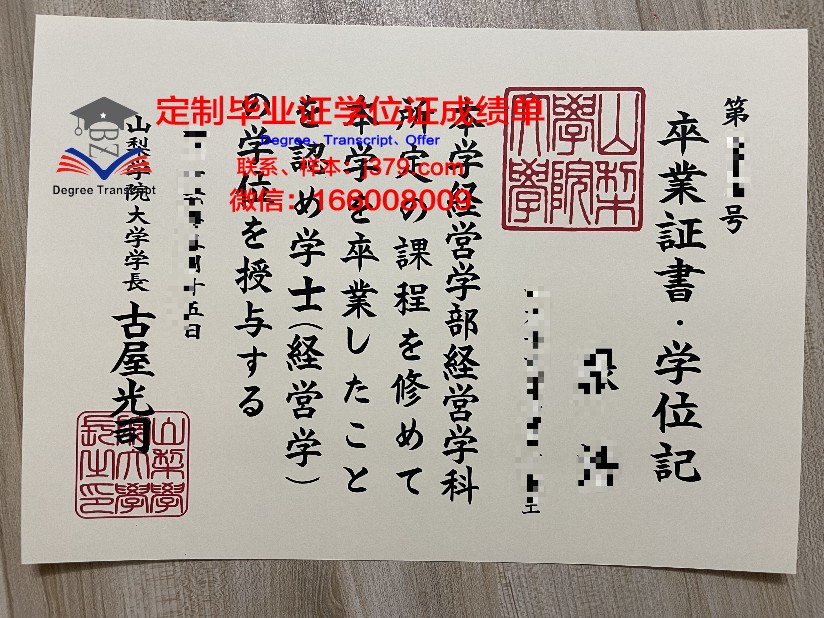 第 号
卒業証書・学位記
山梨學院大學
本学経営学部経営学科
所定の課程を修めて
本学を卒業したこと
を認め学士(経営学)
の学位を授与する
月十五日
山梨学院大学学長 古屋光司
山梨學院大學長之印
定制毕业证学位证成绩单
Degree、Transcript、Offer
联系、样本：j379.com
微信：166008009
Degree Transcript